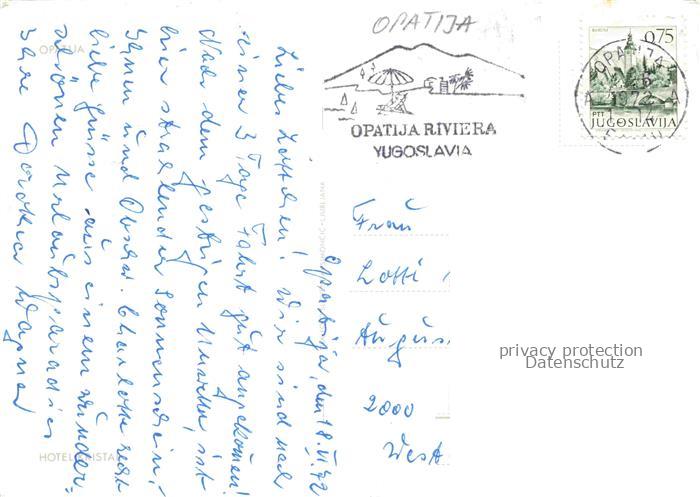 OPATIJA
OPATIJA RIVIERA
YUGOSLAVIA
0,75
OPATIJA
1972
PTT JUGOSLAVIJA
OPATIJA
HOTEL KRISTAL
Opatija, den 18.VI.72
Liebes Lottchen! Wir sind nach
einer 3 Tage Fahrt gut angekommen!
Nach dem gestrigen Unwetter, ist
hier strahlender Sonnenschein!
Ihnen und Charlotte recht
liebe Grüsse aus einem wunder-
schönen Urlaubsparadies
Ihre Dorothea Wagner
Frau
Lotti
Augus
2000
West
privacy protection
Datenschutz